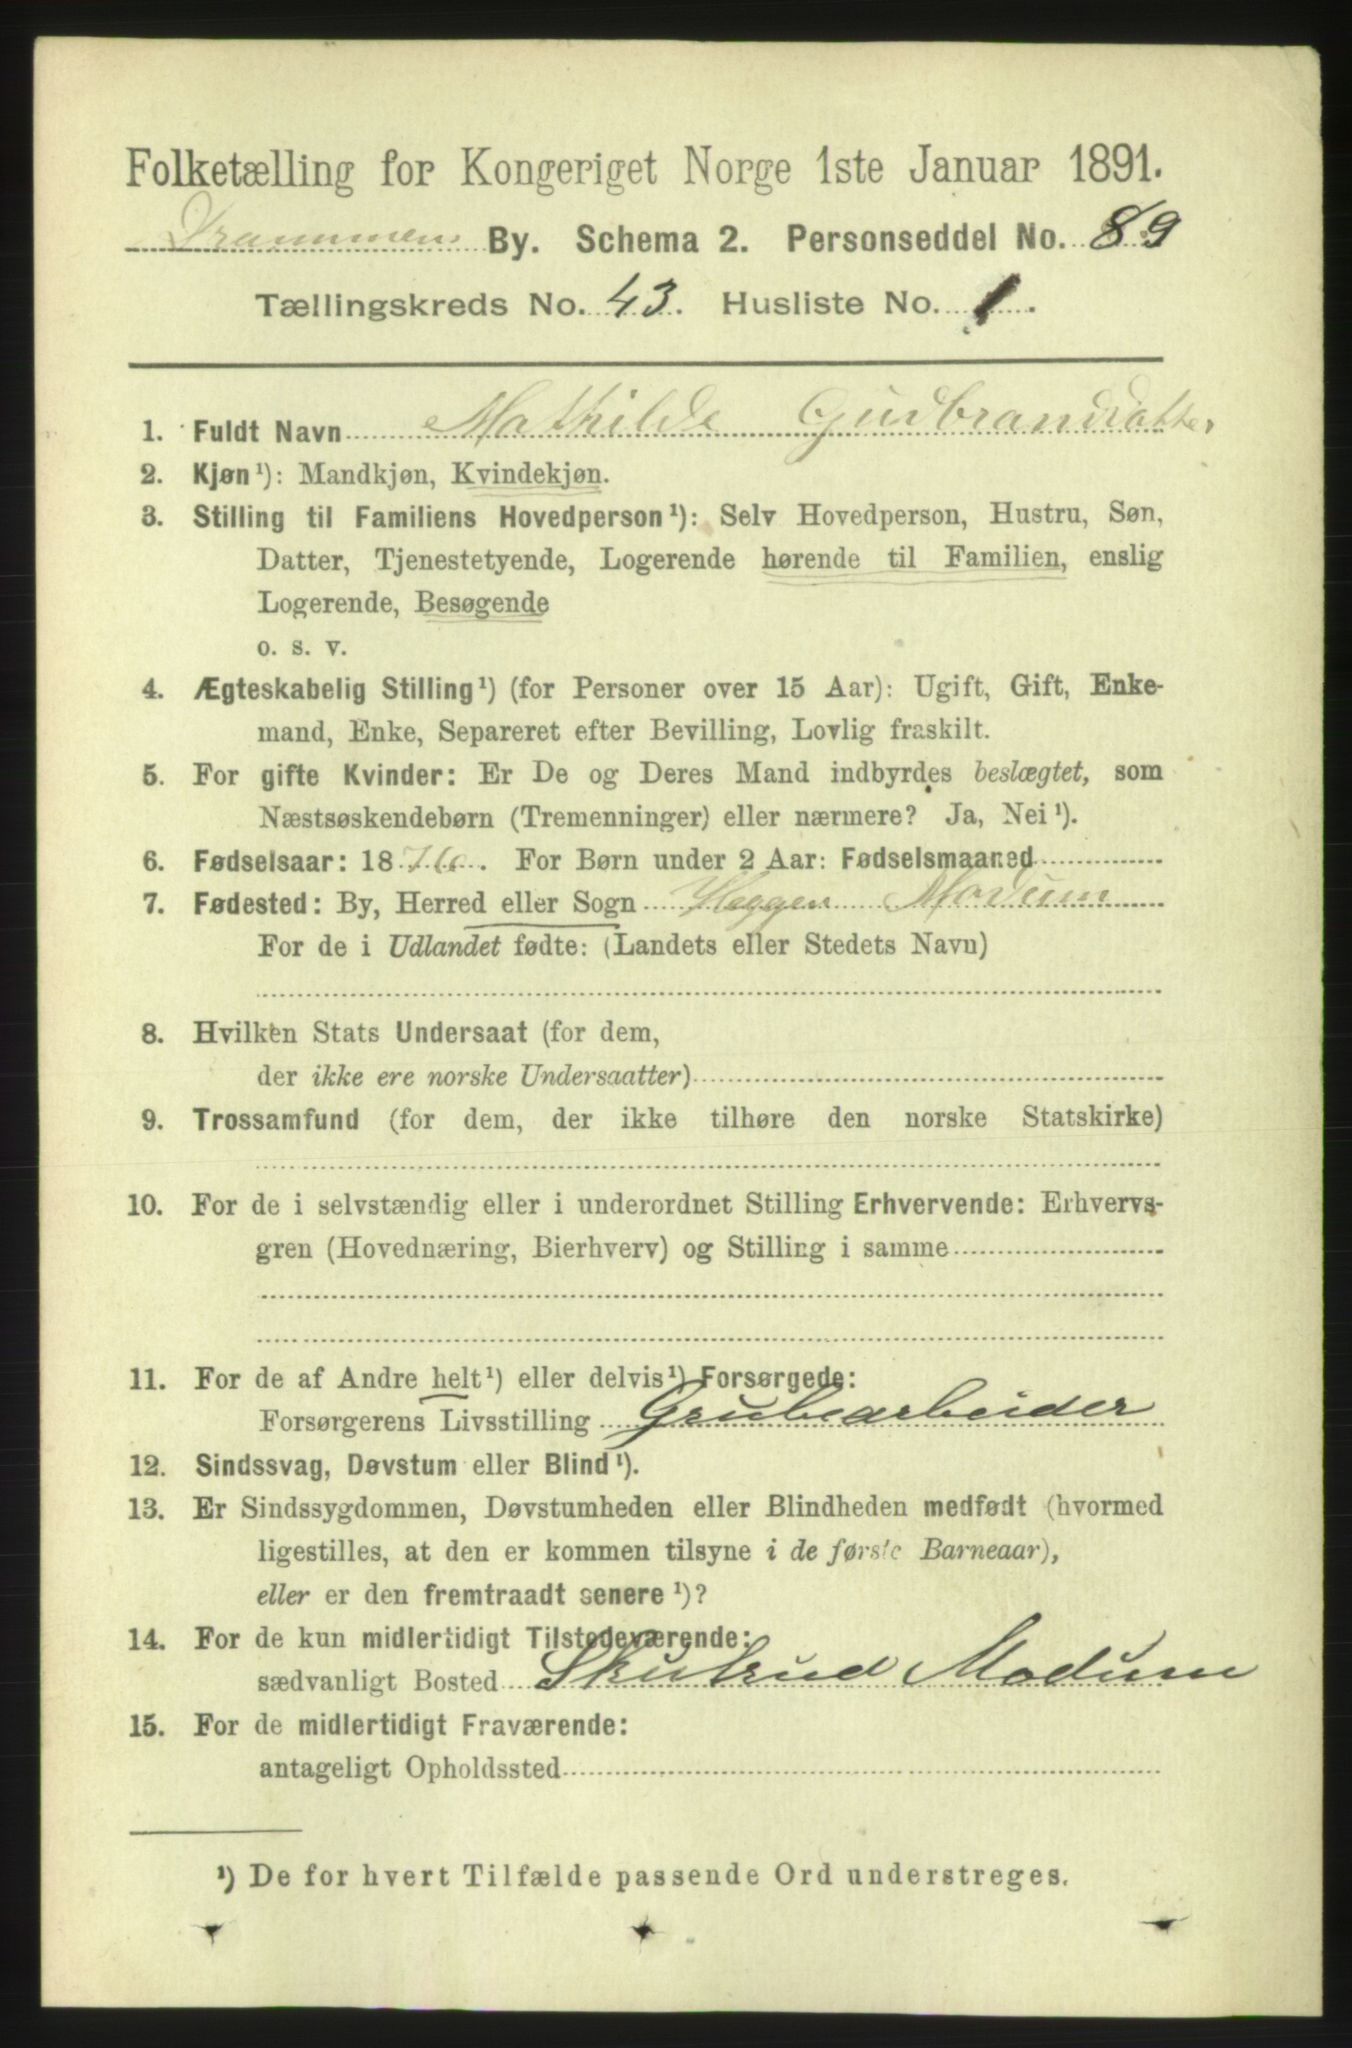 Folketælling for Kongeriget Norge 1ste Januar 1891.
Drammens By. Schema 2. Personseddel No. 89
Tællingskreds No. 43. Husliste No. 1.
1. Fuldt Navn Mathilde Gudbrandsatter
2. Kjøn¹): Mandkjøn, Kvindekjøn.
3. Stilling til Familiens Hovedperson¹): Selv Hovedperson, Hustru, Søn,
Datter, Tjenestetyende, Logerende hørende til Familien, enslig
Logerende, Besøgende
o. s. v.
4. Ægteskabelig Stilling¹) (for Personer over 15 Aar): Ugift, Gift, Enke-
mand, Enke, Separeret efter Bevilling, Lovlig fraskilt.
5. For gifte Kvinder: Er De og Deres Mand indbyrdes beslægtet, som
Næstsøskendebørn (Tremenninger) eller nærmere? Ja, Nei¹).
6. Fødselsaar: 1876. For Børn under 2 Aar: Fødselsmaaned
7. Fødested: By, Herred eller Sogn Heggen Modum
For de i Udlandet fødte: (Landets eller Stedets Navn)
8. Hvilken Stats Undersaat (for dem,
der ikke ere norske Undersaatter)
9. Trossamfund (for dem, der ikke tilhøre den norske Statskirke)
10. For de i selvstændig eller i underordnet Stilling Erhvervende: Erhvervs-
gren (Hovednæring, Bierhverv) og Stilling i samme
11. For de af Andre helt¹) eller delvis¹) Forsørgede:
Forsørgerens Livsstilling Grubearbeider
12. Sindssvag, Døvstum eller Blind¹).
13. Er Sindssygdommen, Døvstumheden eller Blindheden medfødt (hvormed
ligestilles, at den er kommen tilsyne i de første Barneaar),
eller er den fremtraadt senere¹)?
14. For de kun midlertidigt Tilstedeværende:
sædvanligt Bosted Skutrud Modum
15. For de midlertidigt Fraværende:
antageligt Opholdssted
¹) De for hvert Tilfælde passende Ord understreges.